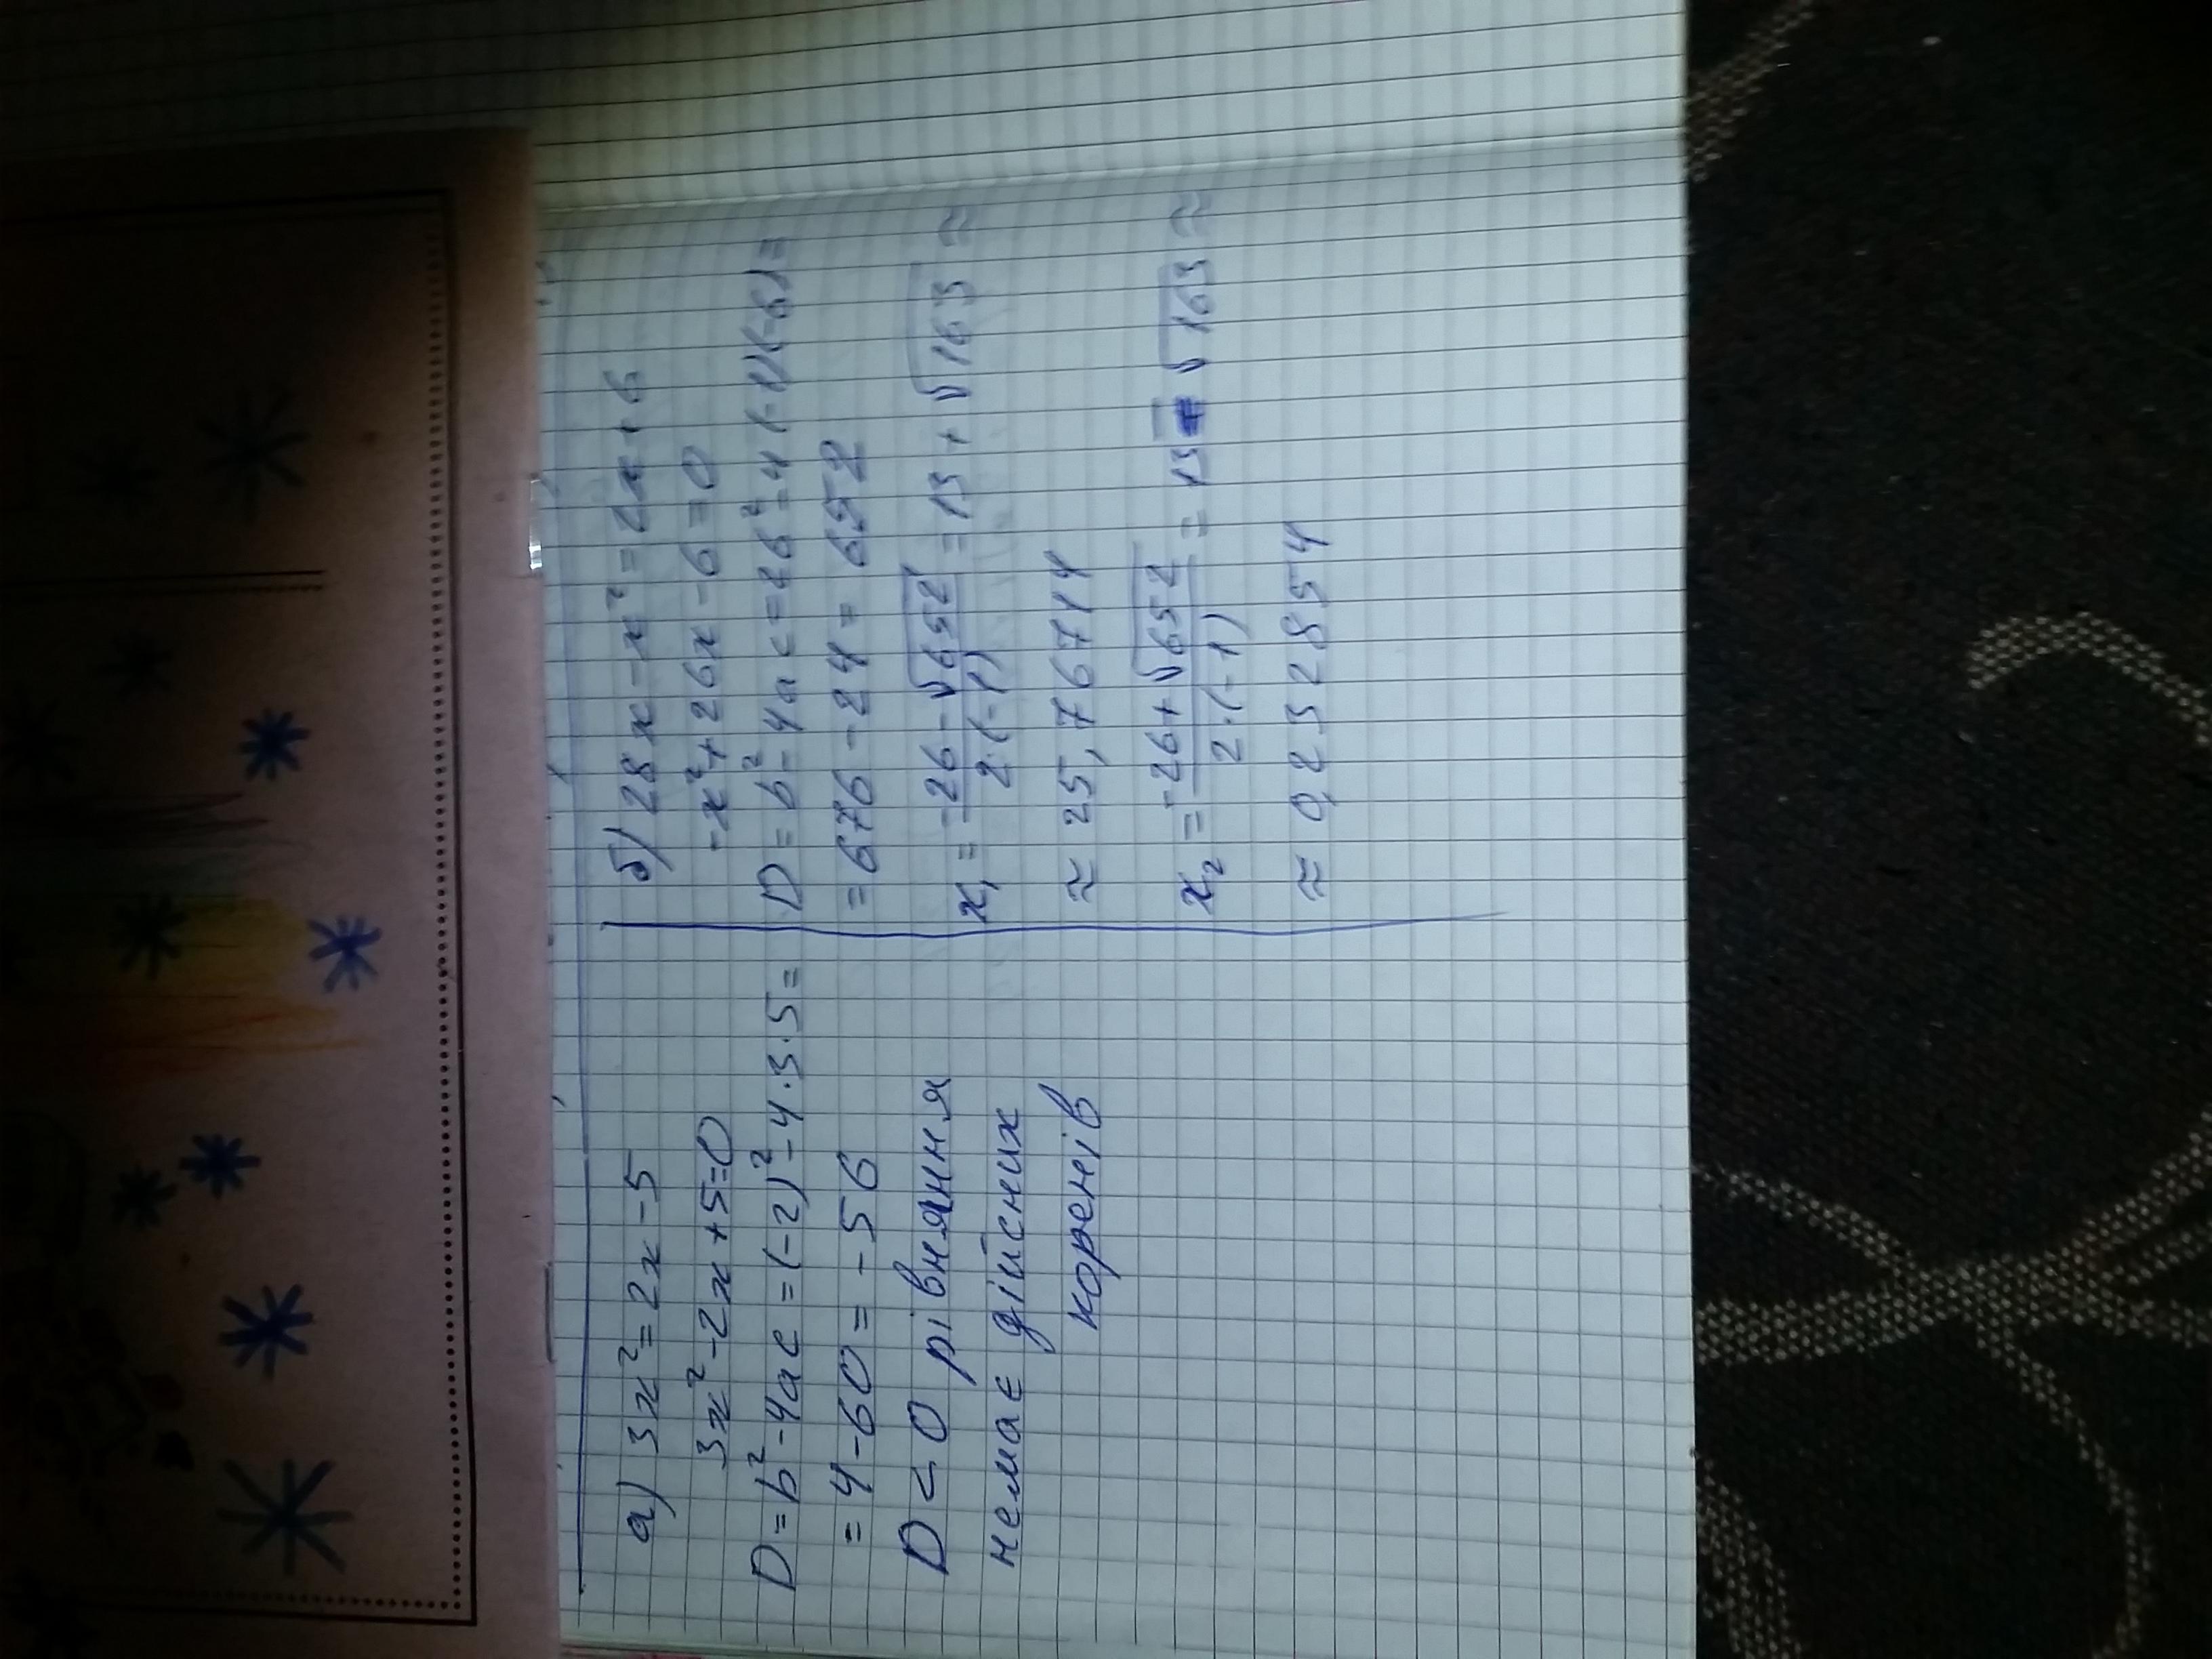 а) 3x² = 2x - 5
3x² - 2x + 5 = 0
D = b² - 4ac = (-2)² - 4 · 3 · 5 =
= 4 - 60 = - 56
D < 0 рівняння
немає дійсних
коренів
б) 28x - x² = 2x + 6
-x² + 26x - 6 = 0
D = b² - 4ac = 26² - 4 (-1)(-6) =
= 676 - 24 = 652
x₁ = (-26 - √652)/(2 · (-1)) = 13 + √163 ≈
≈ 25,76714
x₂ = (-26 + √652)/(2 · (-1)) = 13 - √163 ≈
≈ 0,2328554